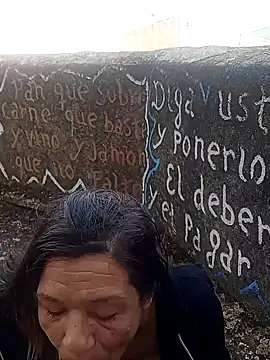 Pan que sobre
carne que baste
y vino y Jamon
que no falte
Diga v ust
y Ponerlo
El deber
y el Pagar